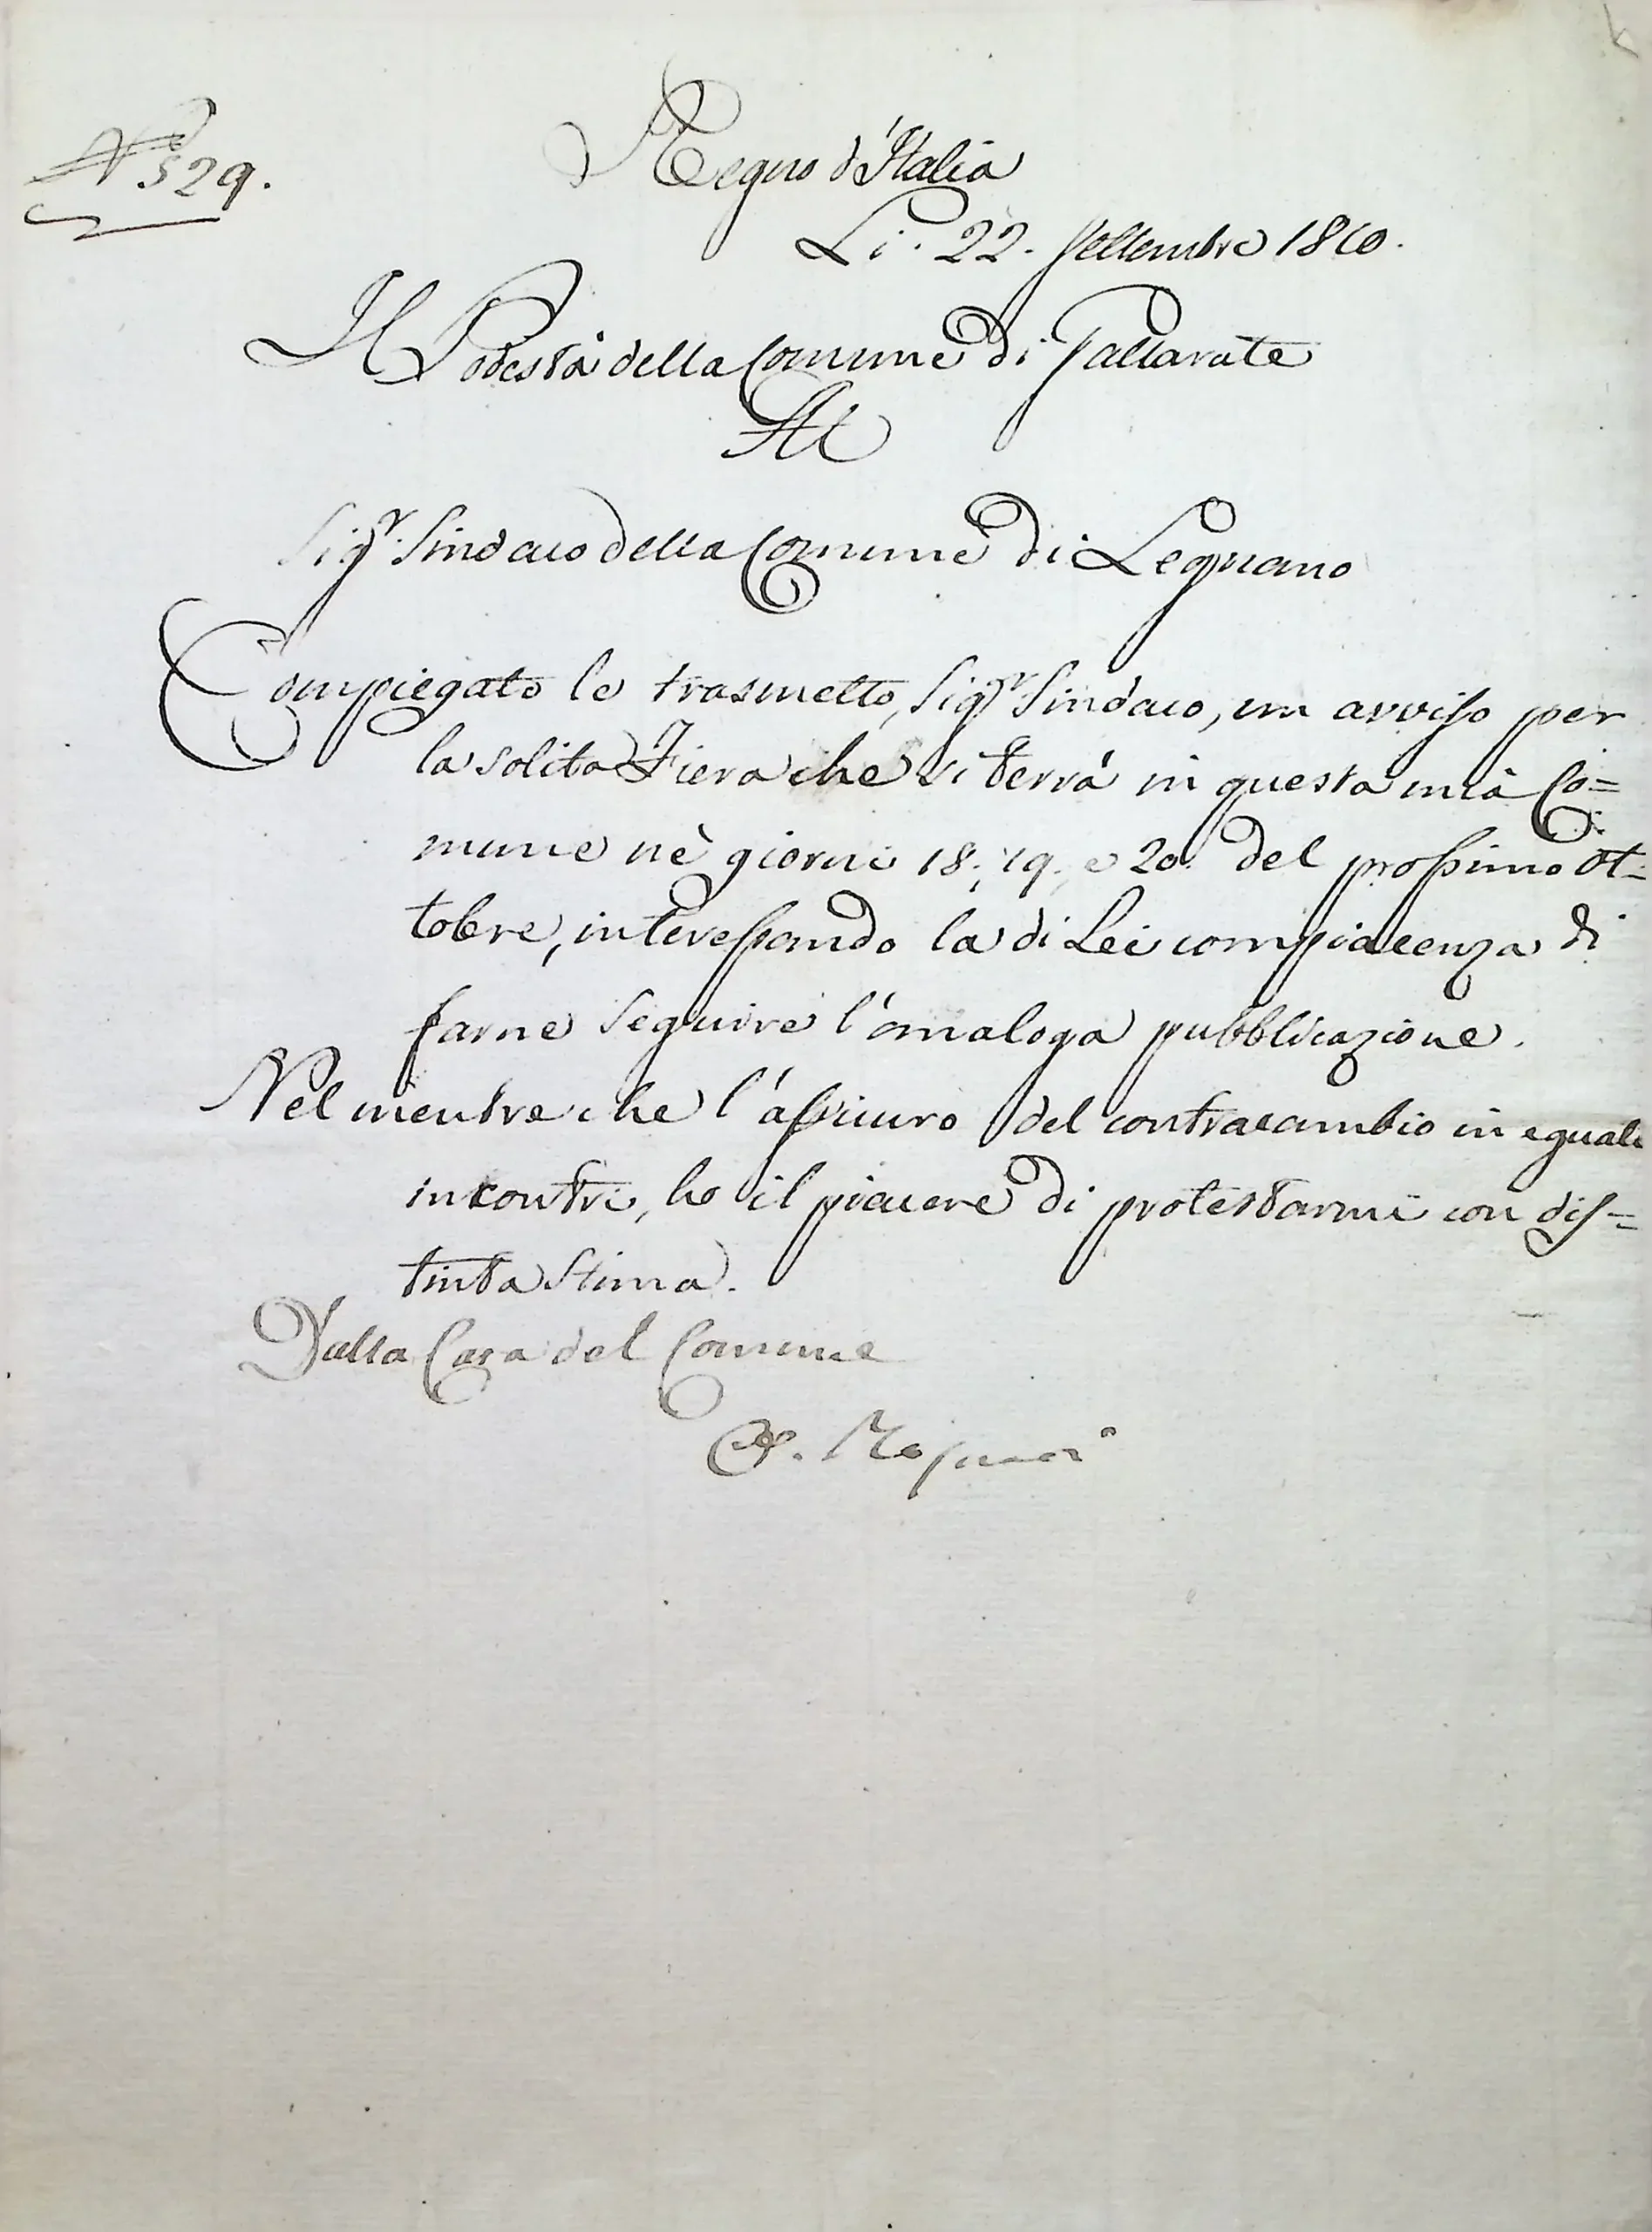 N.º 529.
Regno d'Italia
Li. 22. Settembre 1810.
Il Podestà della Comune di Gallarate
Al
Sigr. Sindaco della Comune di Legnano
Compiegato le trasmetto, Sigr. Sindaco, un avviso per
la solita Fiera che si terrà in questa mia Co=
mune nè giorni 18., 19., e 20. del prossimo Ot=
tobre, interessando la di Lei compiacenza di
farne seguire l'analoga pubblicazione.
Nel mentre che l'assicuro del contracambio in eguali
incontri, ho il piacere di protestarmi con dis=
tinta stima.
Dalla Casa del Comune